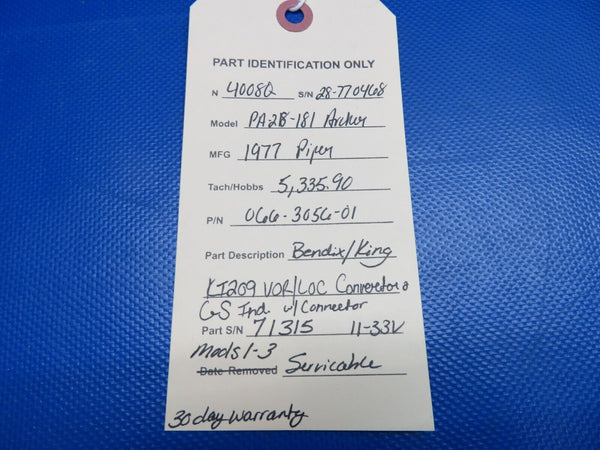 PART IDENTIFICATION ONLY
N 4008Q S/N 28-770468
Model PA28-181 Archer
MFG 1977 Piper
Tach/Hobbs 5,335.90
P/N 066-3056-01
Part Description Bendix/King
KI209 VOR/LOC Converetor &
GS Ind w/ Connector
Part S/N 71315 11-33V
Mods 1-3
Date Removed Servicable
30 day warranty